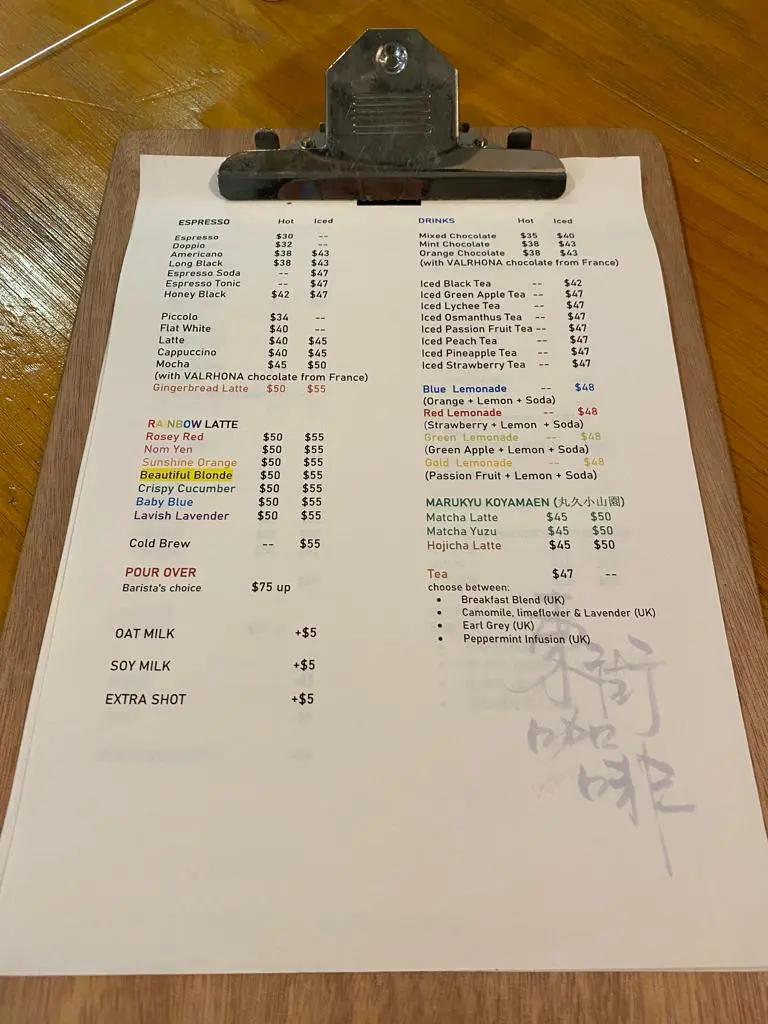 ESPRESSO Hot Iced
Espresso $30 --
Doppio $32 --
Americano $38 $43
Long Black $38 $43
Espresso Soda -- $47
Espresso Tonic -- $47
Honey Black $42 $47
Piccolo $34 --
Flat White $40 --
Latte $40 $45
Cappuccino $40 $45
Mocha $45 $50
(with VALRHONA chocolate from France)
Gingerbread Latte $50 $55
RAINBOW LATTE
Rosey Red $50 $55
Nom Yen $50 $55
Sunshine Orange $50 $55
Beautiful Blonde $50 $55
Crispy Cucumber $50 $55
Baby Blue $50 $55
Lavish Lavender $50 $55
Cold Brew -- $55
POUR OVER
Barista's choice $75 up
OAT MILK +$5
SOY MILK +$5
EXTRA SHOT +$5
DRINKS Hot Iced
Mixed Chocolate $35 $40
Mint Chocolate $38 $43
Orange Chocolate $38 $43
(with VALRHONA chocolate from France)
Iced Black Tea -- $42
Iced Green Apple Tea -- $47
Iced Lychee Tea -- $47
Iced Osmanthus Tea -- $47
Iced Passion Fruit Tea -- $47
Iced Peach Tea -- $47
Iced Pineapple Tea -- $47
Iced Strawberry Tea -- $47
Blue Lemonade -- $48
(Orange + Lemon + Soda)
Red Lemonade -- $48
(Strawberry + Lemon + Soda)
Green Lemonade -- $48
(Green Apple + Lemon + Soda)
Gold Lemonade -- $48
(Passion Fruit + Lemon + Soda)
MARUKYU KOYAMAEN (丸久小山園)
Matcha Latte $45 $50
Matcha Yuzu $45 $50
Hojicha Latte $45 $50
Tea $47 --
choose between:
• Breakfast Blend (UK)
• Camomile, limeflower & Lavender (UK)
• Earl Grey (UK)
• Peppermint Infusion (UK)
街
咖
啡